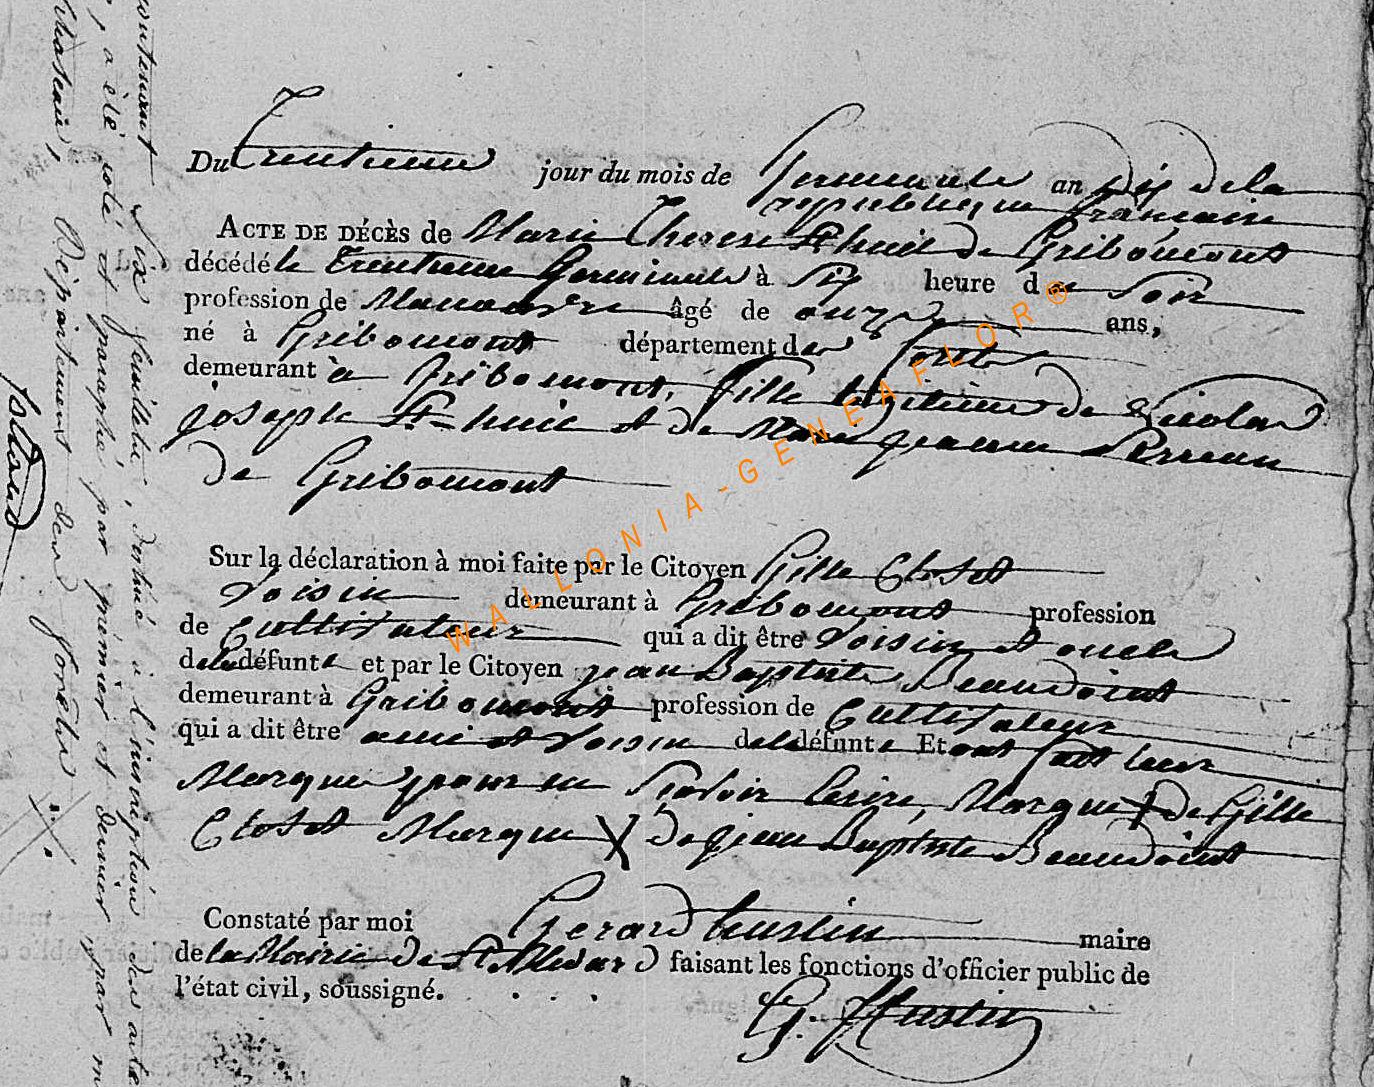 Du trentieme jour du mois de Germinale an dix de la
republique francaise
ACTE DE DÉCÈS de Marie Therese St huil de Gribomont
décédé le trentieme Germinale à six heure du soir
profession de Manouvre âgé de onze ans,
né à Gribomont département des forets
demeurant à Gribomont, fille legitime de Nicolas
joseph St huil et de Marie jeanne Perreau
de Gribomont
Sur la déclaration à moi faite par le Citoyen Gille Closet
voisin demeurant à Gribomont profession
de Cultivateur qui a dit être voisin et oncle
de la défunte et par le Citoyen jean Baptiste Beaudoint
demeurant à Gribomont profession de Cultivateur
qui a dit être ami et voisin de la défunte Et ont fait leur
Marque pour ne scavoir Ecrire, Marque X de Gille
Closet Marque X de jean Baptiste Beaudoint
Constaté par moi Gerard hustin maire
de la Mairie de St Medard faisant les fonctions d'officier public de
l'état civil, soussigné.
G. Hustin
contenant six feuillets, destiné à l'inscription des actes
, a été coté et paraphé par premier et dernier par m
château, Département des forêts
WALLONIA-GENEAFLOR®